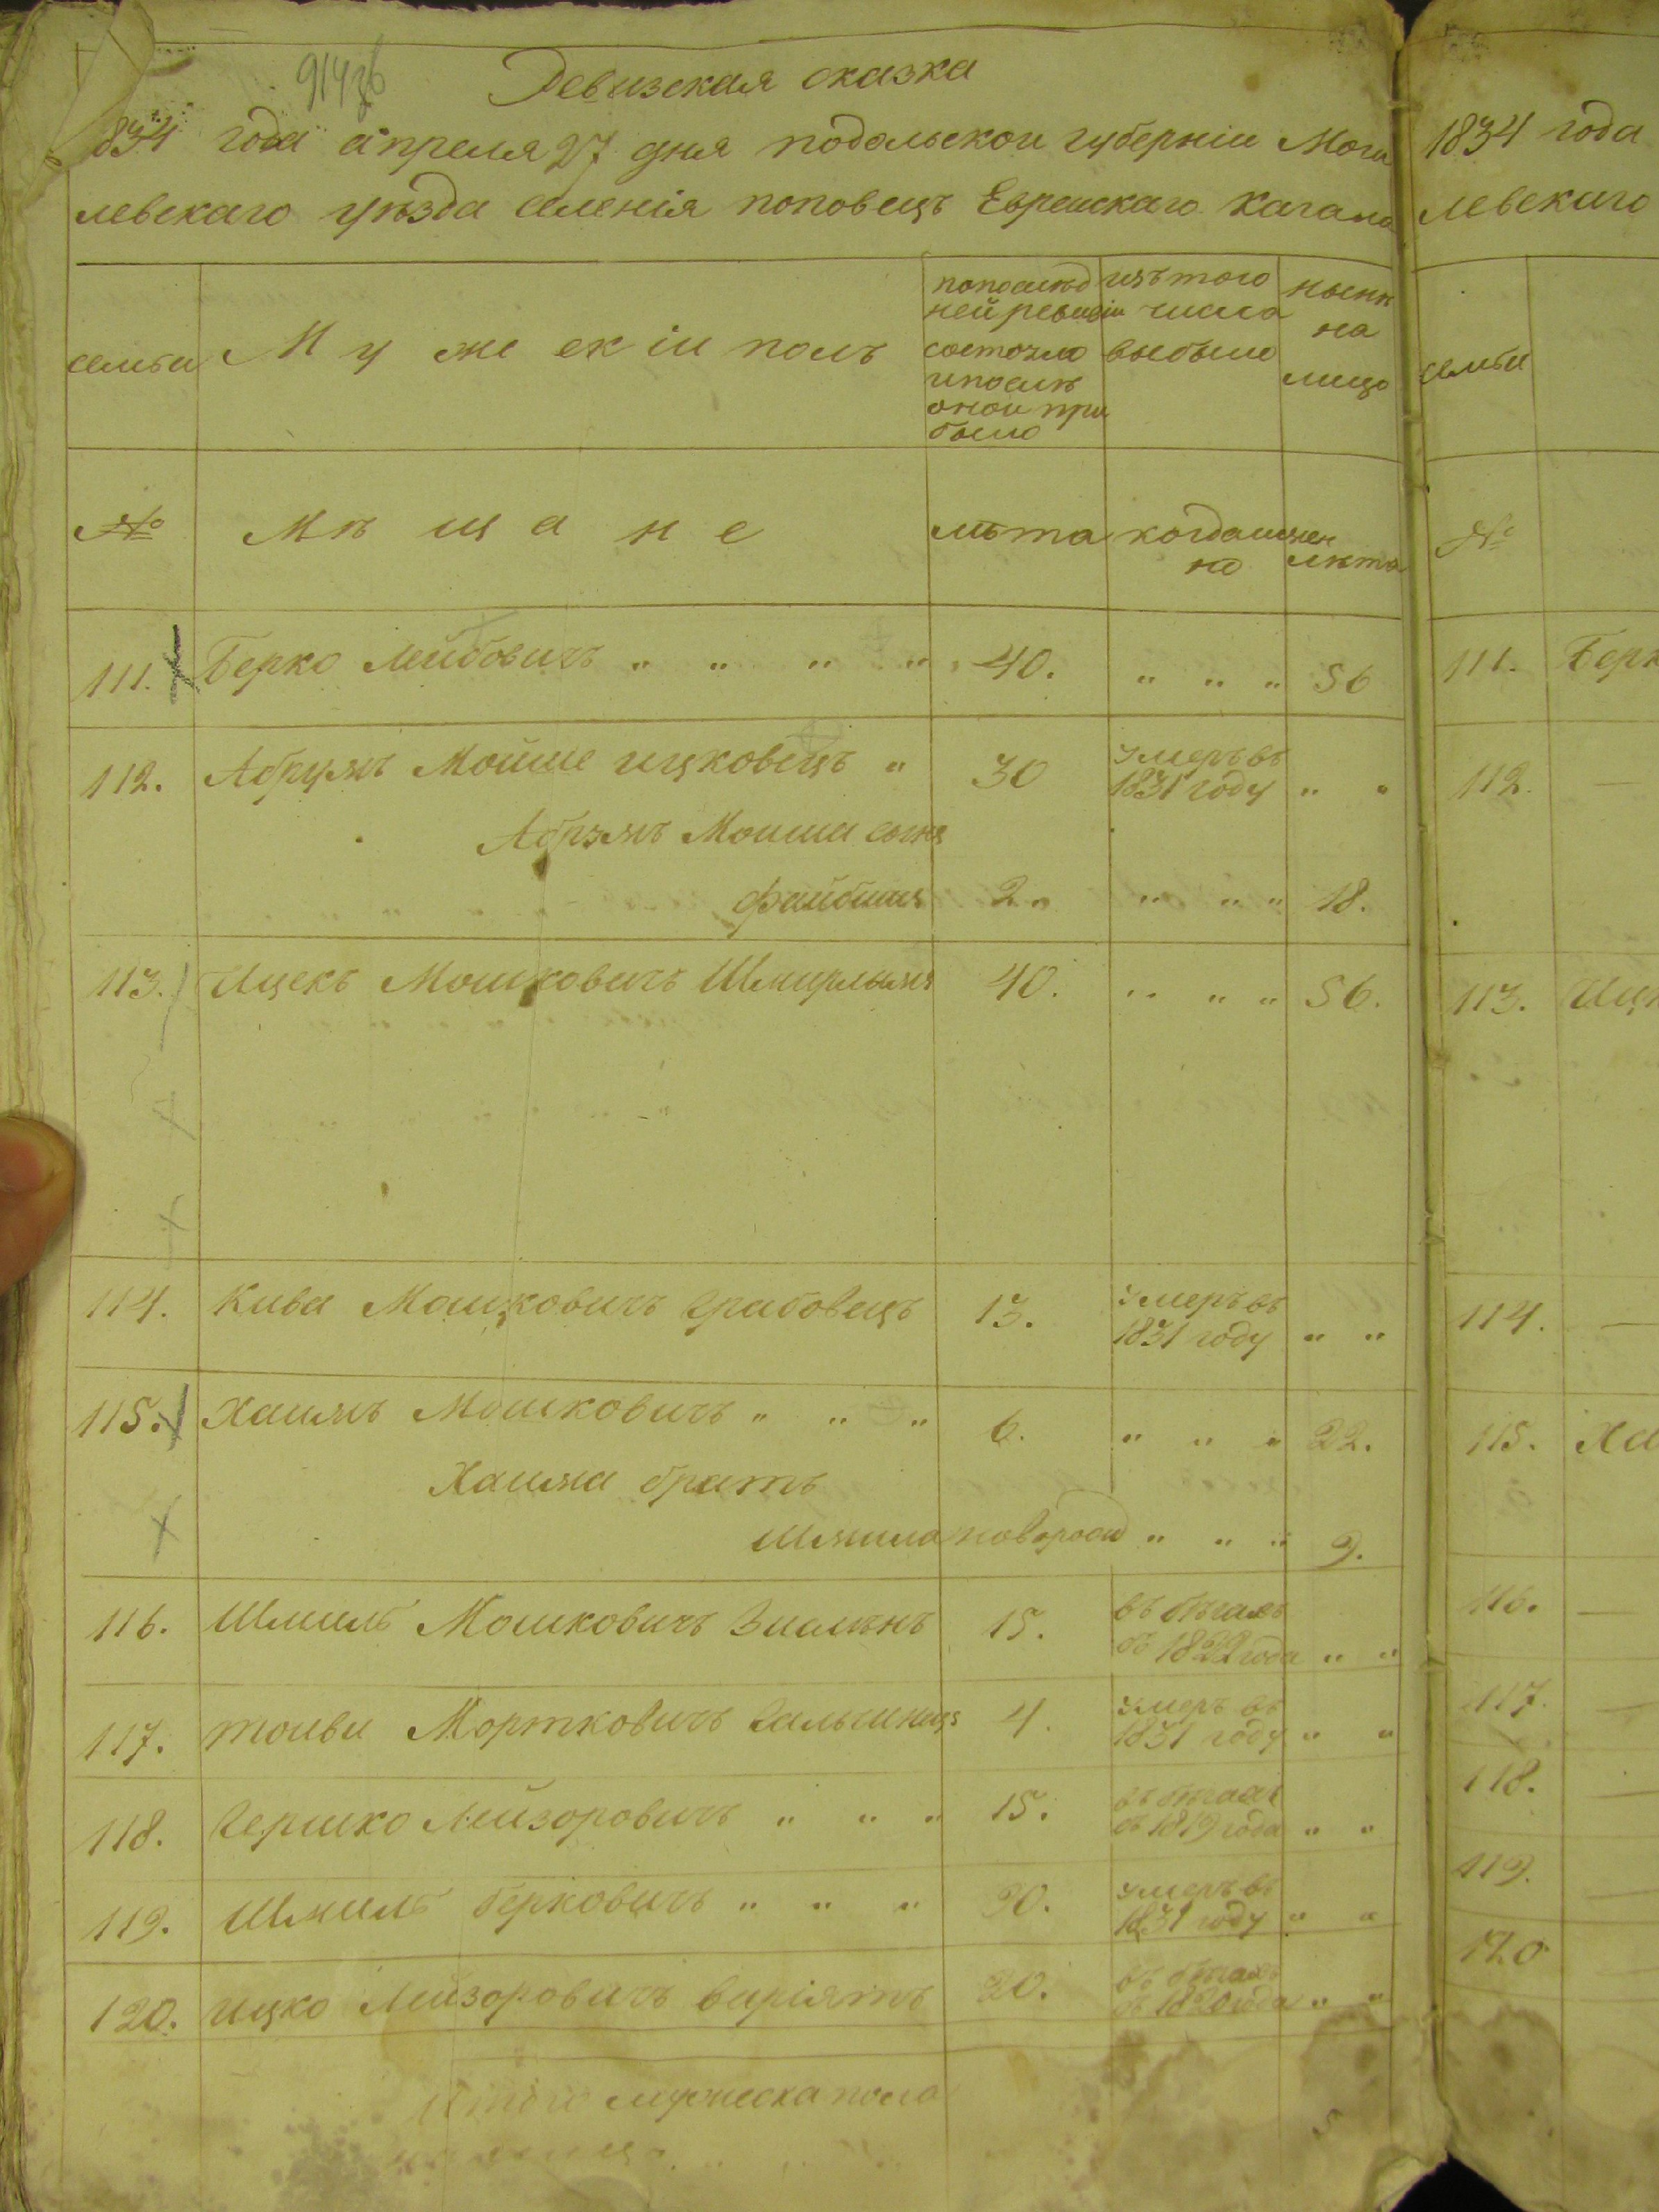 Ревизская сказка
1834 года апреля 27 дня подольской губерніи Моги
левскаго уезда селенія поповецъ Еврейскаго кагала
семьи
Мужескіи полъ
попослед
ней ревизіи
состояло
ипосле
оной при
было
изъ того
числа
выбыло
ныне
на
лицо
№
Мещане
лета
когдаимен
но
лета
111. Берко Лейбовичъ " " " " 40. " " " 56
112. Абрумъ Мойше ицковецъ " 30 умеръ въ
1831 году " "
Абрумъ Моиши сынъ
файбишъ 2. " " " 18.
113. Ицекъ Мошковичъ 40. " " " 56.
114. Кива Мошковичъ Грабовецъ 13. умеръ въ
1831 году " "
115. Хаимъ Мошковичъ " " " 6. " " " 22.
Хаима братъ
Шмила новорожд " " " 9.
116. Шмиль Мошковичъ 15. въ бегахъ
съ 1822 года " "
117. Мортковичъ 4. умеръ въ
1831 году " "
118. Гершко Лейзоровичъ " " " 15. въ бегахъ
съ 1819 года " "
119. Шмиль Берковичъ " " " 30. умеръ въ
1831 году " "
120. ицко Лейзоровичъ 20. въ бегахъ
съ 1820 года " "
Итого мужеска пола
1834 года
левскаго
семьи
№
111. Берк
112.
113. Ицк
114.
115. Ха
116.
117.
118.
119.
120